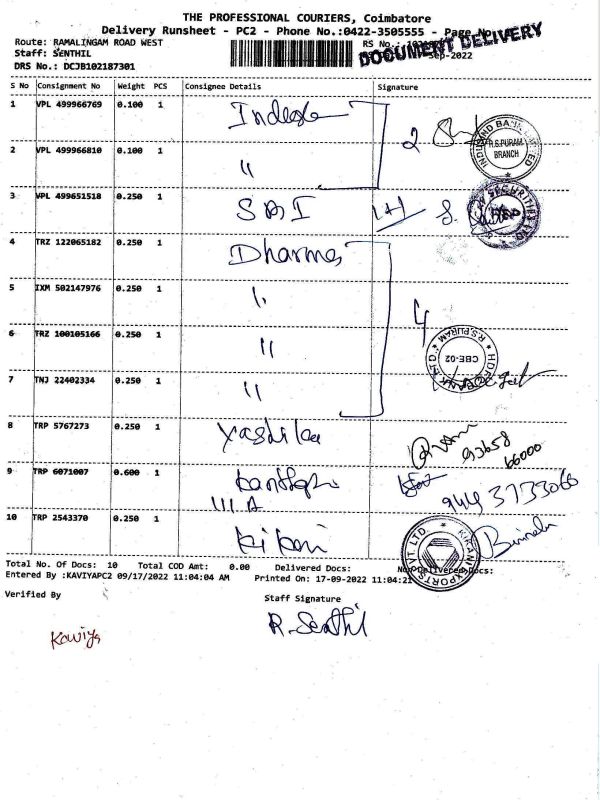 THE PROFESSIONAL COURIERS, Coimbatore
Delivery Runsheet - PC2 - Phone No.:0422-3505555 - Page No
Route: RAMALINGAM ROAD WEST
RS No.:
DOCUMENT DELIVERY
Staff: SENTHIL
Sep-2022
DRS No.: DCJB102187301
S No Consignment No Weight PCS Consignee Details Signature
1 VPL 499966769 0.100 1
2
INDUSIND BANK LIMITED
R.S.PURAM
BRANCH
2 VPL 499966810 0.100 1 "
3 VPL 499651518 0.250 1 SBI 1+1
SECURITIES LTD
4 TRZ 122065182 0.250 1 Dharma
5 IXM 502147976 0.250 1 "
4
6 TRZ 100105166 0.250 1 "
R.S.PURAM
CBE-02
7 TNJ 22402334 0.250 1 "
8 TRP 5767273 0.250 1 Yashika
93658
66000
9 TRP 6071007 0.600 1
111 A
944 3733066
10 TRP 2543370 0.250 1 Kikani
KIKANI EXPORTS PVT. LTD.
Total No. Of Docs: 10 Total COD Amt: 0.00 Delivered Docs: Non Delivered Docs:
Entered By :KAVIYAPC2 09/17/2022 11:04:04 AM Printed On: 17-09-2022 11:04:21
Verified By Staff Signature
Kaviya R. Senthil